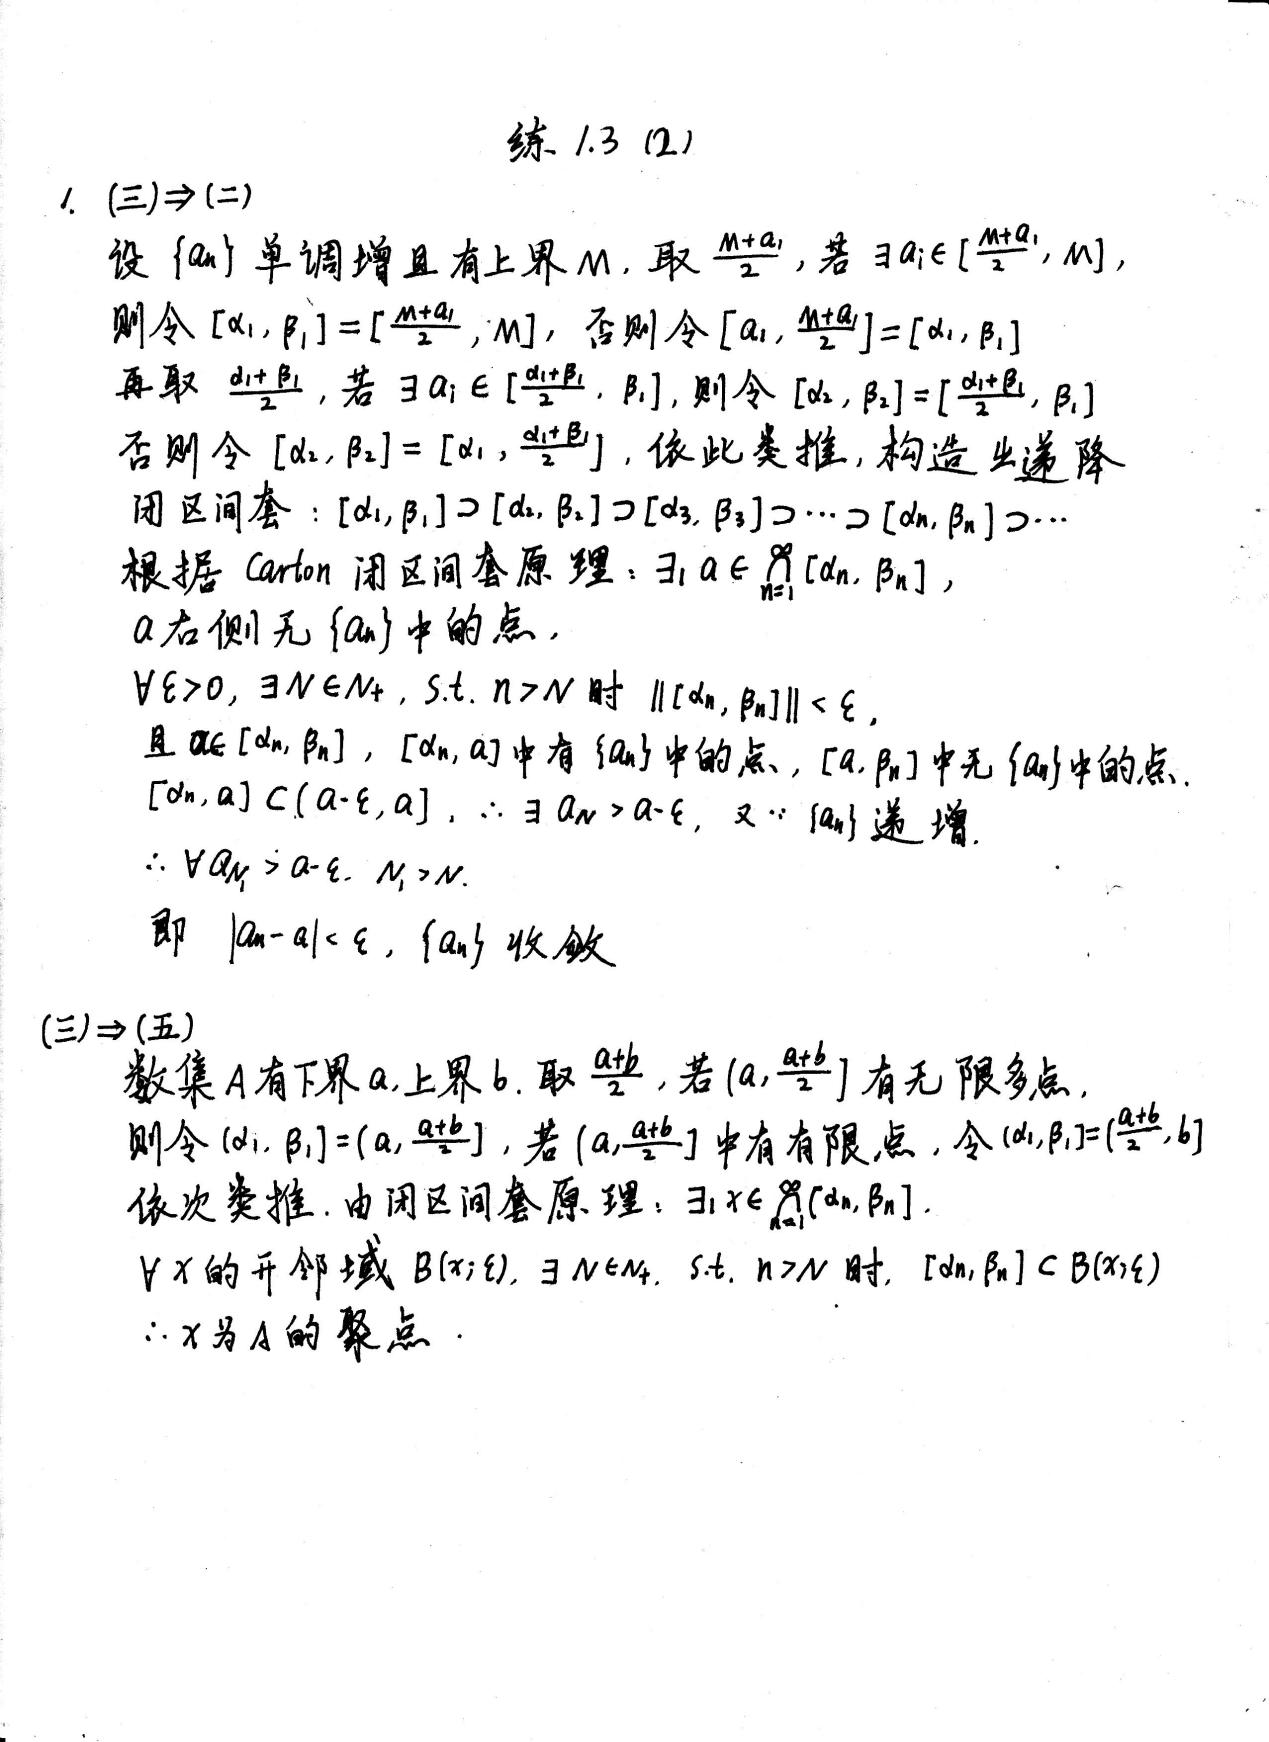 练 1.3 (2)
1. (三)⇒(二)
设 {aₙ} 单调增且有上界 M. 取 (M+a₁)/2, 若 ∃ aᵢ∈[(M+a₁)/2, M],
则令 [α₁, β₁]=[(M+a₁)/2, M], 否则令 [a₁, (M+a₁)/2]=[α₁, β₁]
再取 (α₁+β₁)/2, 若 ∃ aᵢ ∈ [(α₁+β₁)/2, β₁], 则令 [α₂, β₂]=[(α₁+β₁)/2, β₁]
否则令 [α₂, β₂] = [α₁, (α₁+β₁)/2], 依此类推, 构造出递降
闭区间套: [α₁, β₁]⊃[α₂, β₂]⊃[α₃, β₃]⊃⋯⊃[αₙ, βₙ]⊃⋯
根据 Carton 闭区间套原理: ∃₁ a ∈ ⋂_{n=1}^∞ [αₙ, βₙ],
a 右侧无 {aₙ} 中的点,
∀ε>0, ∃N∈N₊, s.t. n>N 时 ‖[αₙ, βₙ]‖<ε,
且 a∈[αₙ, βₙ], [αₙ, a] 中有 {aₙ} 中的点, [a, βₙ] 中无 {aₙ} 中的点.
[αₙ, a]⊂(a-ε, a], ∴ ∃ a_N > a-ε, 又∵ {aₙ} 递增.
∴ ∀ a_{N₁} > a-ε. N₁>N.
即 |aₙ-a|<ε, {aₙ} 收敛
(三)⇒(五)
数集 A 有下界 a, 上界 b. 取 (a+b)/2, 若 (a, (a+b)/2] 有无限多点,
则令 (α₁, β₁]=(a, (a+b)/2], 若 (a, (a+b)/2] 中有有限点, 令 (α₁, β₁]=((a+b)/2, b]
依次类推. 由闭区间套原理: ∃₁ x∈⋂_{n=1}^∞ [αₙ, βₙ].
∀ x 的开邻域 B(x; ε), ∃ N∈N₊, s.t. n>N 时, [αₙ, βₙ]⊂B(x; ε)
∴ x 为 A 的聚点.